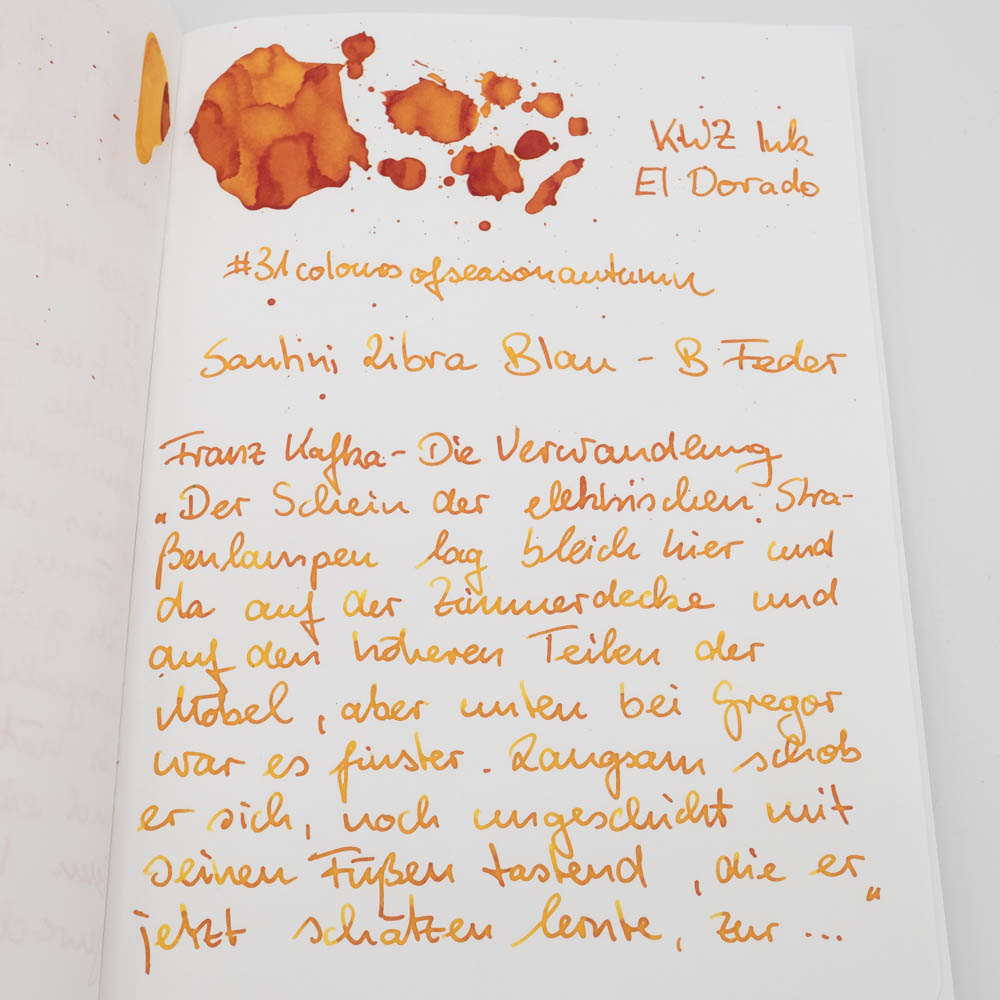 KWZ Ink
El Dorado
#31coloursofseasonautumn
Santini Libra Blau - B Feder
Franz Kafka - Die Verwandlung
„Der Schein der elektrischen Stra-
ßenlampen lag bleich hier und
da auf der Zimmerdecke und
auf den höheren Teilen der
Möbel, aber unten bei Gregor
war es finster. Langsam schob
er sich, noch ungeschickt mit
seinen Füßen tastend, die er
jetzt schätzen lernte, zur ..."